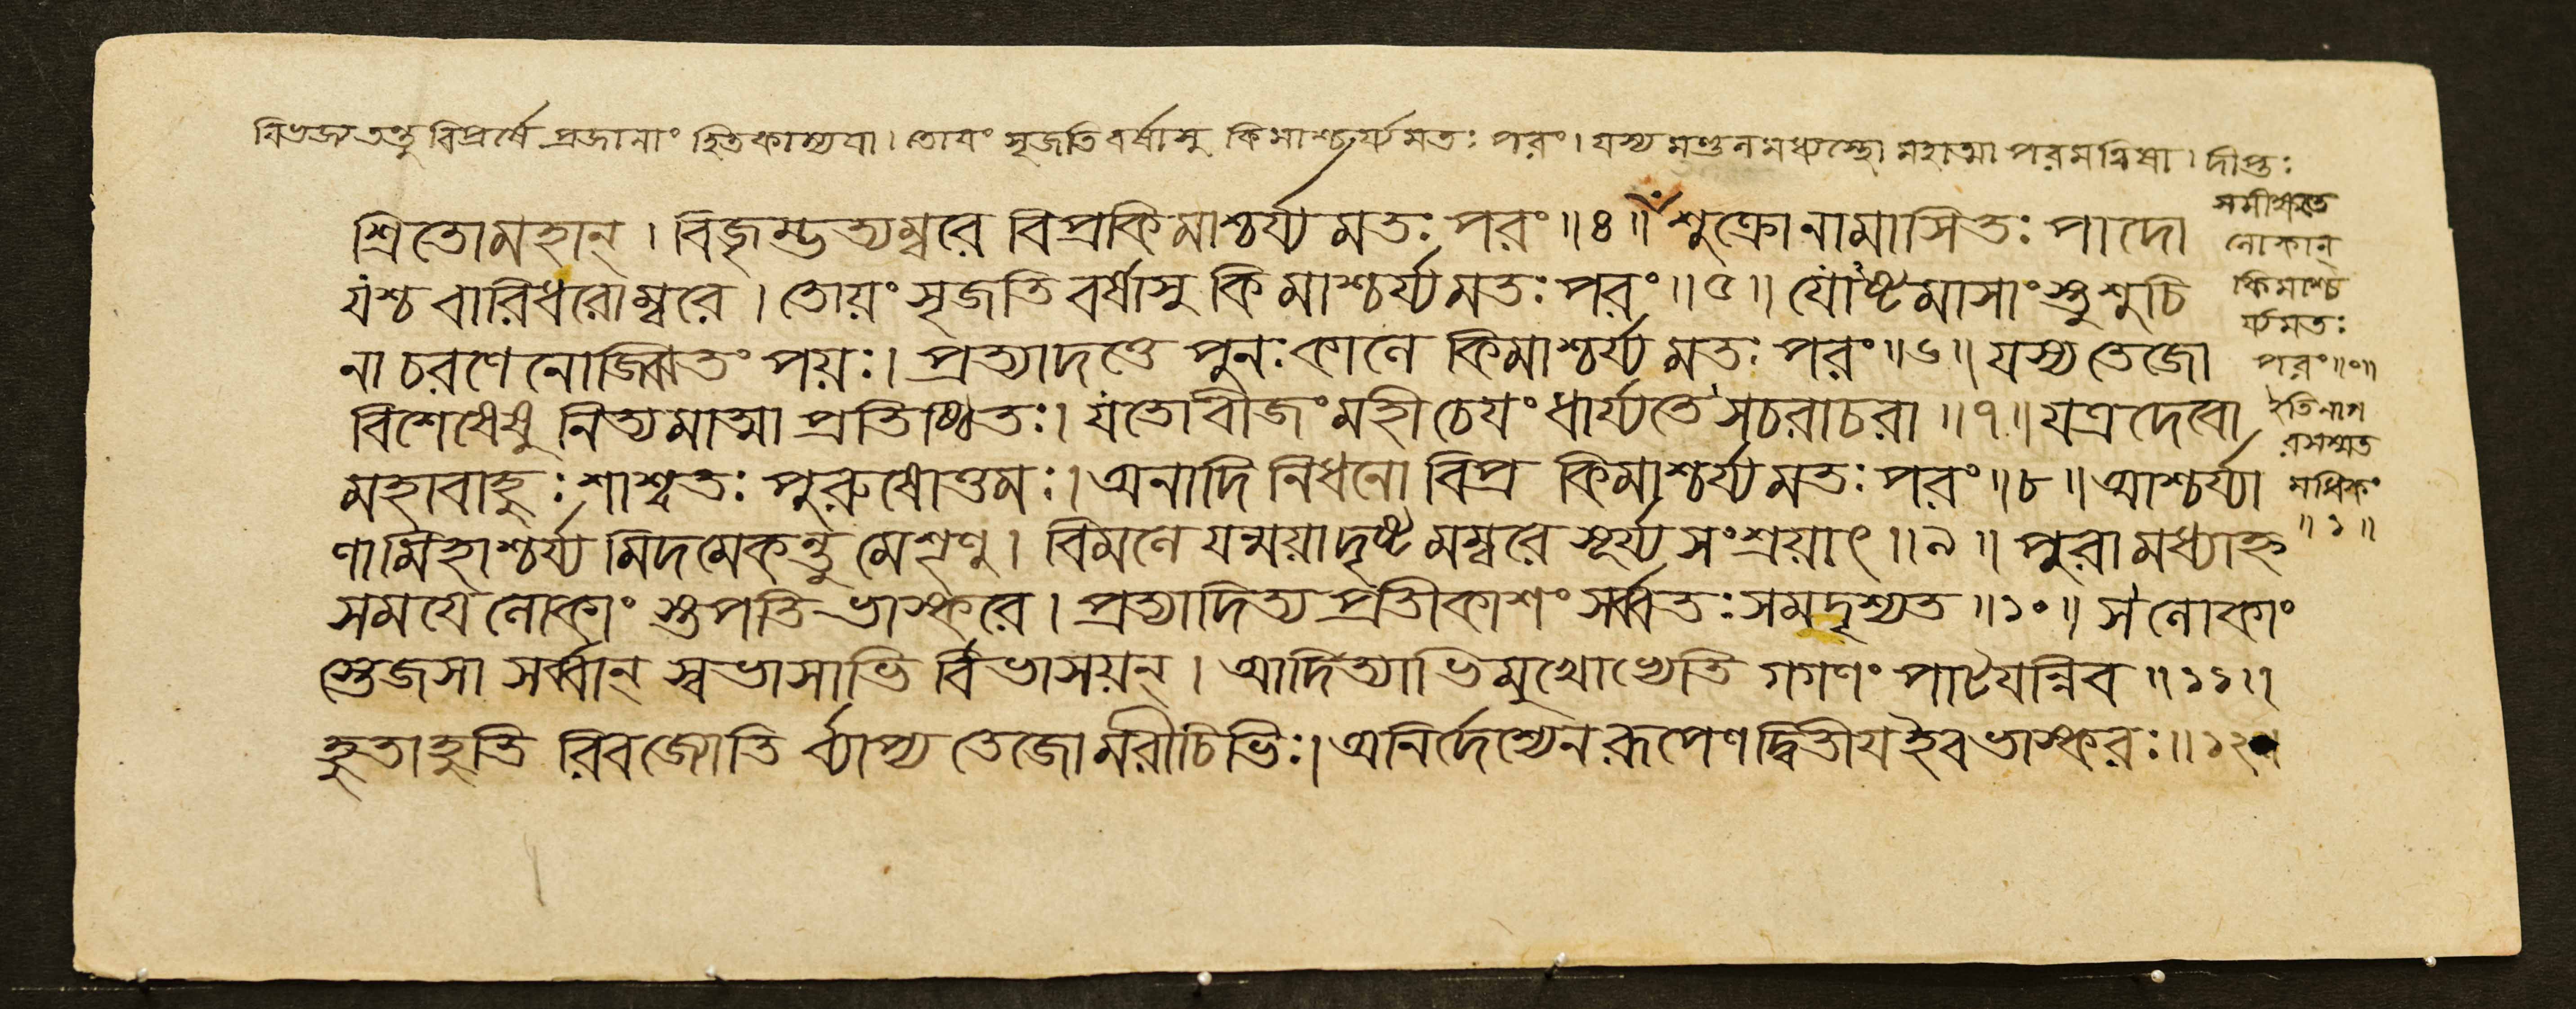 বিভজ্য তন্তু বিপ্রর্ষে প্রজানাং হিতকাম্যযা। তোযং সৃজতি বর্ষাসু কিমাশ্চর্য্যমতঃ পরং। যস্য মণ্ডলমধ্যস্থো মহাত্মা পরমত্বিষা। দীপ্তঃ
সমীক্ষতে
লোকান্
কিমাশ্চ
র্য্যমতঃ
পরং॥॰॥
ইতি নাগ
রসম্মত
মধিকং
॥১॥
শ্রিতো মহান্। বিজৃম্ভত্যম্বরে বিপ্র কিমাশ্চর্য্যমতঃ পরং॥৪॥ শুক্রো নামাসিতঃ পাদো
যশ্চ বারিধরোম্বরে। তোয়ং সৃজতি বর্ষাসু কিমাশ্চর্য্যমতঃ পরং॥৫॥ যোষ্টমাসাংস্তু শুচি
না চরণে নোজ্ঝিতং পয়ঃ। প্রত্যাদত্তে পুনঃ কালে কিমাশ্চর্য্যমতঃ পরং॥৬॥ যস্য তেজো
বিশেষেষু নিত্যমাত্মা প্রতিষ্ঠিতঃ। যতো বীজং মহী চেযং ধার্য্যতে সচরাচরা॥৭॥ যত্র দেবো
মহাবাহুঃ শাশ্বতঃ পুরুষোত্তমঃ। অনাদি নিধনো বিপ্র কিমাশ্চর্য্যমতঃ পরং॥৮॥ আশ্চর্য্যা
ণামিহাশ্চর্য্যমিদমেকন্তু মে শৃণু। বিমলে যন্ময়া দৃষ্টমম্বরে সূর্য্যসংশ্রয়াৎ॥৯॥ পুরা মধ্যাহ্ন
সমযে লোকাংস্তপতি ভাস্করে। প্রত্যাদিত্যপ্রতীকাশং সর্ব্বতঃ সমদৃশ্যত॥১০॥ স লোকাং
স্তেজসা সর্ব্বান্ স্বভাসাভির্বিভাসয়ন্। আদিত্যাভিমুখোভ্যেতি গগণং পাটযন্নিব॥১১॥
হুতাহুতিরিব জ্যোতির্ব্যাপ্য তেজোমরীচিভিঃ। অনির্দেশ্যেন রূপেণ দ্বিতীয ইব ভাস্করঃ॥১২॥